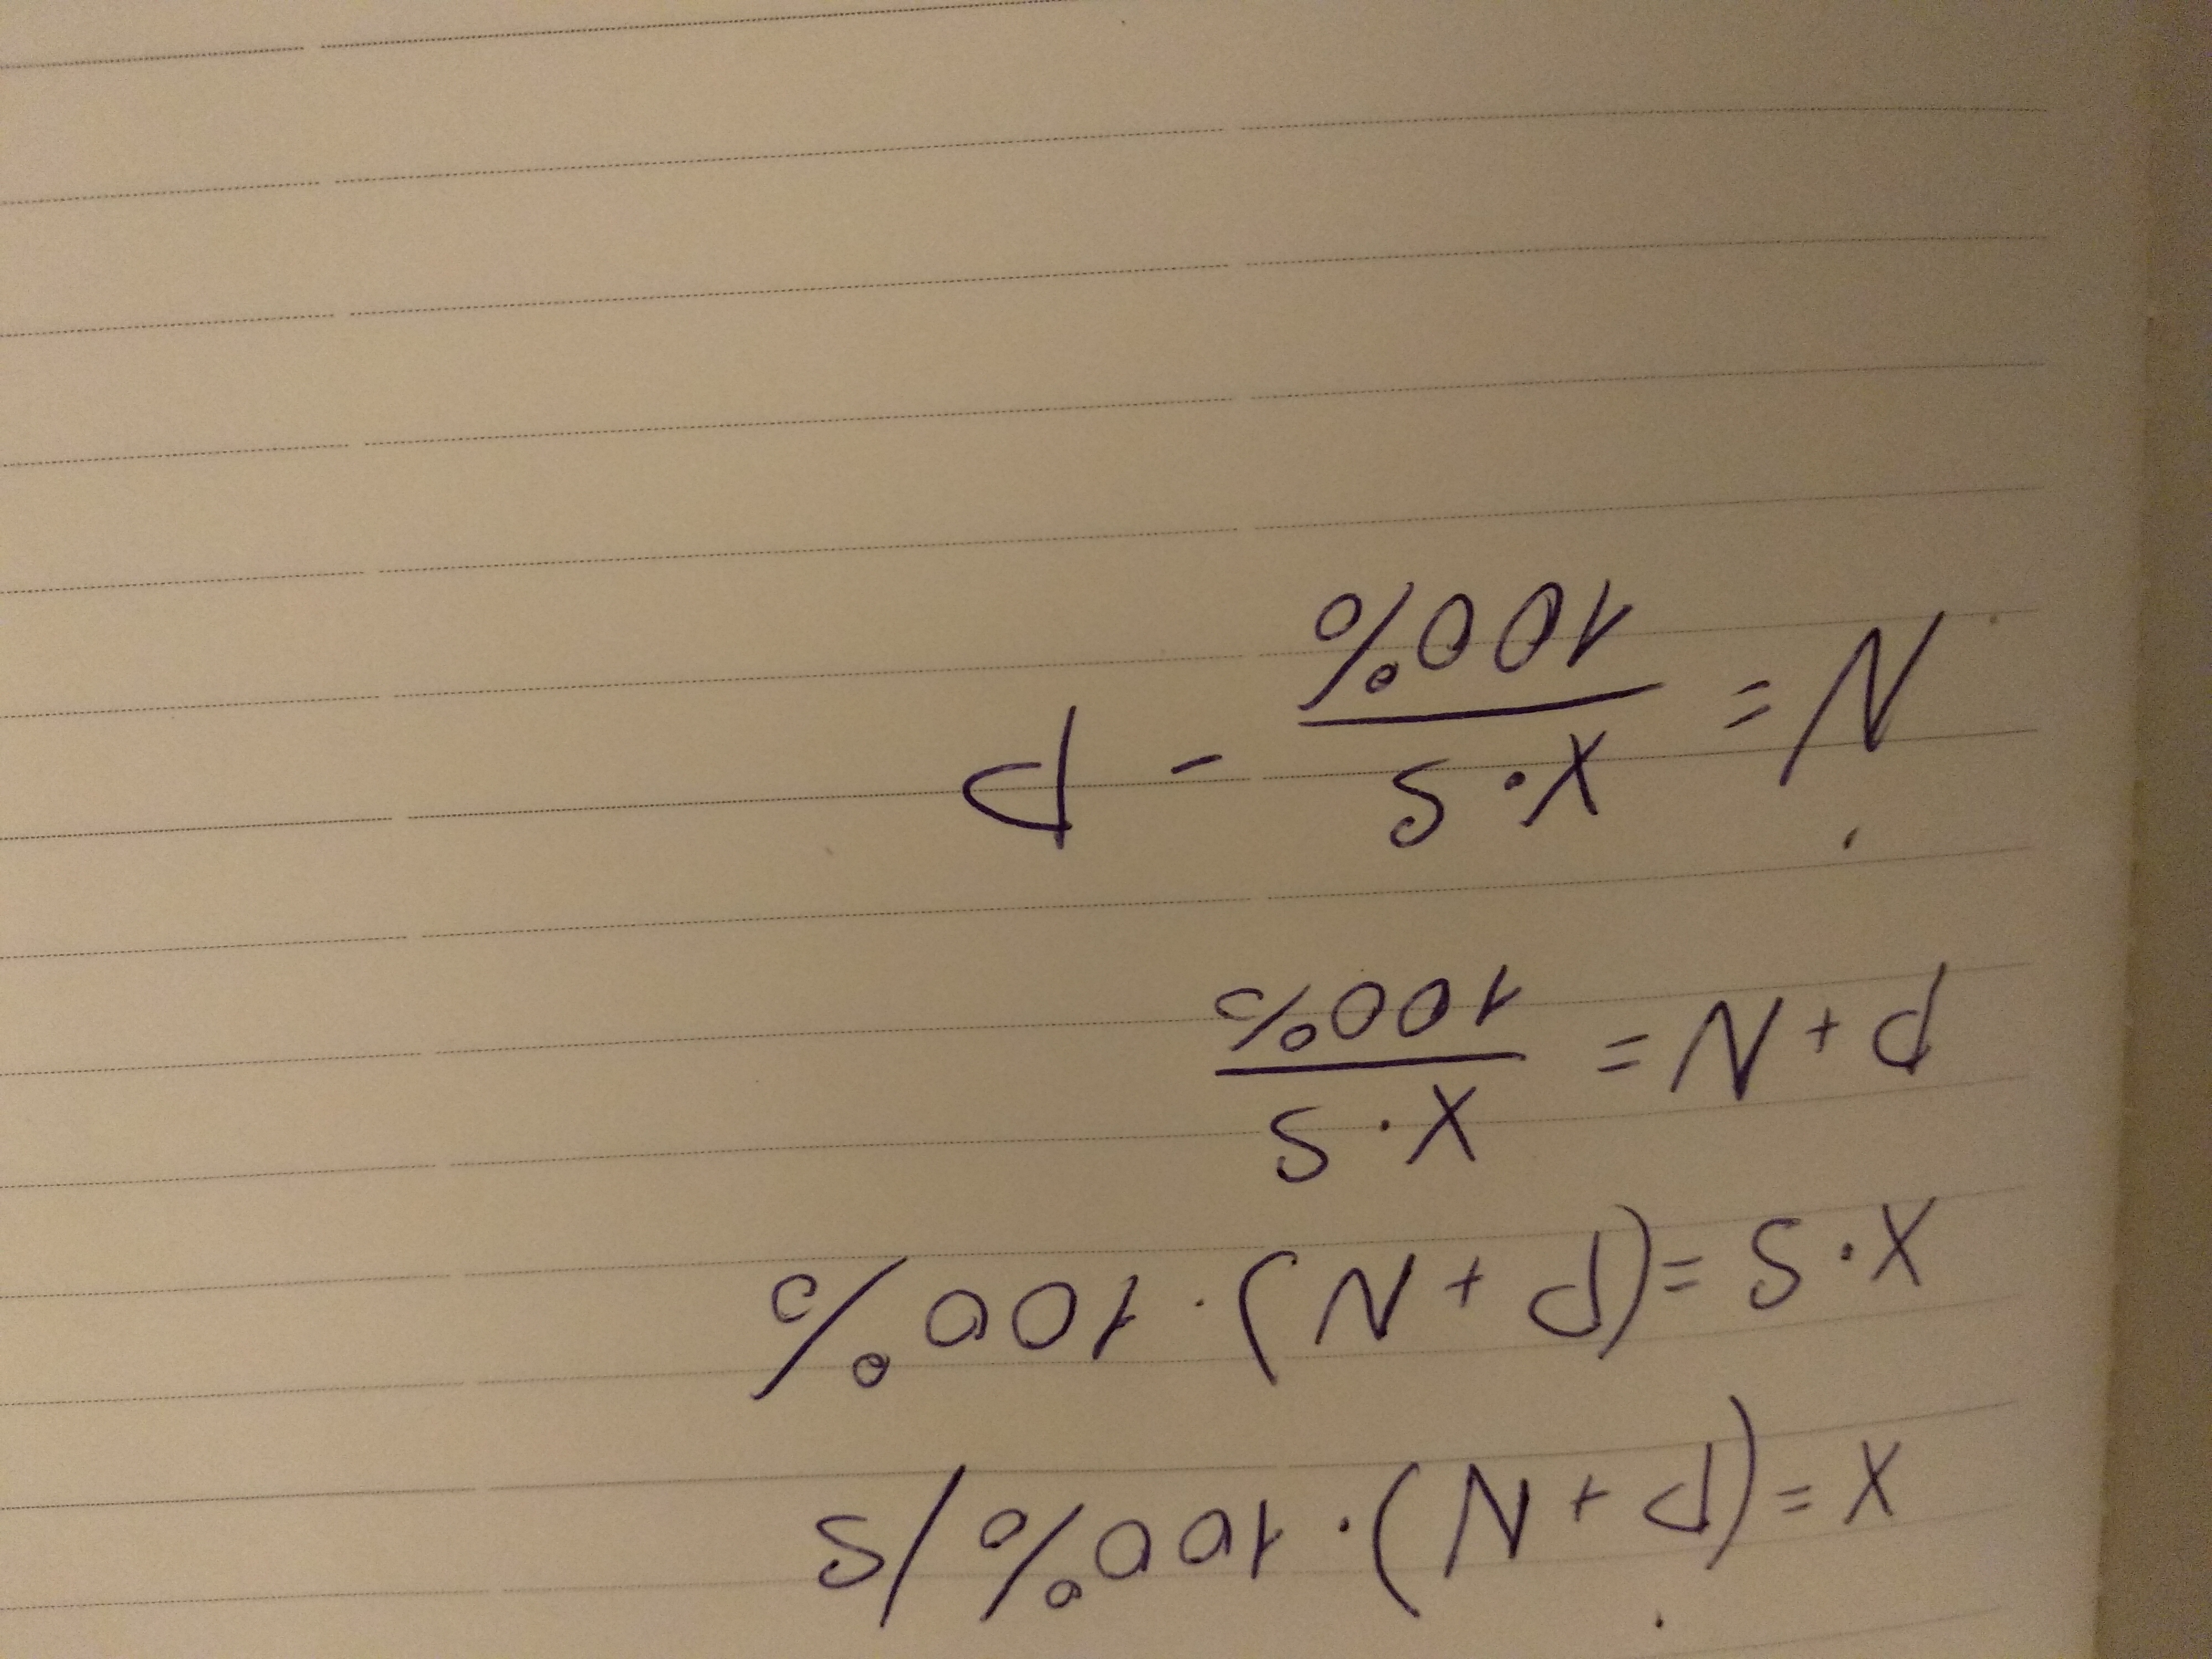 X = (P + N) · 100% / S
X · S = (P + N) · 100%
P + N = X · S / 100%
N = X · S / 100% - P